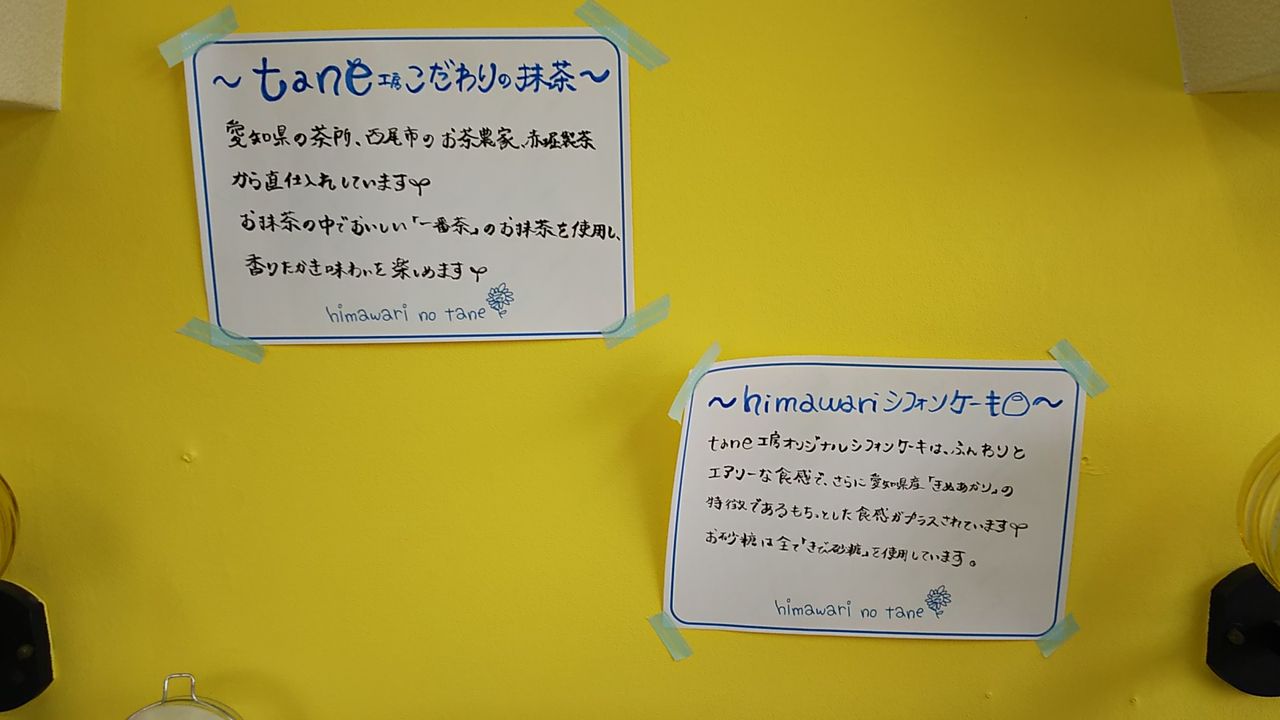 ～tane工房こだわりの抹茶～
愛知県の茶所、西尾市のお茶農家、赤堀製茶
から直仕入れしています
お抹茶の中でおいしい「一番茶」のお抹茶を使用し、
香りたかき味わいを楽しめます
himawari no tane
～himawariシフォンケーキ～
tane工房オリジナルシフォンケーキは、ふんわりと
エアリーな食感で、さらに愛知県産「きぬあかり」の
特徴であるもちっとした食感がプラスされています
お砂糖は全て「きび砂糖」を使用しています。
himawari no tane